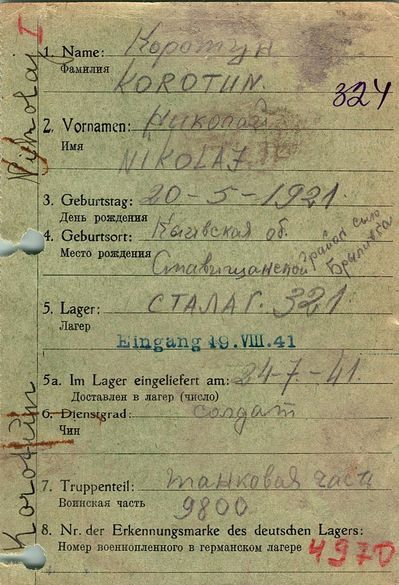 I
1. Name: Коротун
Фамилия
KOROTUN.
324
2. Vornamen: Николай
Имя
NIKOLAJ
3. Geburtstag: 20-5-1921
День рождения
4. Geburtsort: Кыивская об.
Место рождения
Ставищанской район село
5. Lager: СТАЛАГ. 321
Лагерь
Eingang 19. VIII. 41
5a. Im Lager eingeliefert am: 24-7.-41.
Доставлен в лагерь (число)
6. Dienstgrad: солдат
Чин
7. Truppenteil: танковая часть
Воинская часть
9800
8. Nr. der Erkennungsmarke des deutschen Lagers:
Номер военнопленного в германском лагере
4970
Korotun
Nykolaj